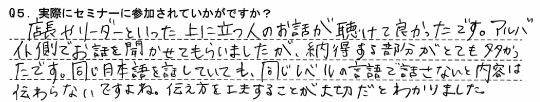 Q5. 実際にセミナーに参加されていかがですか?
店長やリーダーといった上に立つ人のお話が聴けて良かったです。アルバ
イト側でお話を聞かせてもらいましたが、納得する部分がとても多かっ
たです。同じ日本語を話していても、同じレベルの言語で話さないと内容は
伝わらないですよね。伝え方を工夫することが大切だとわかりました